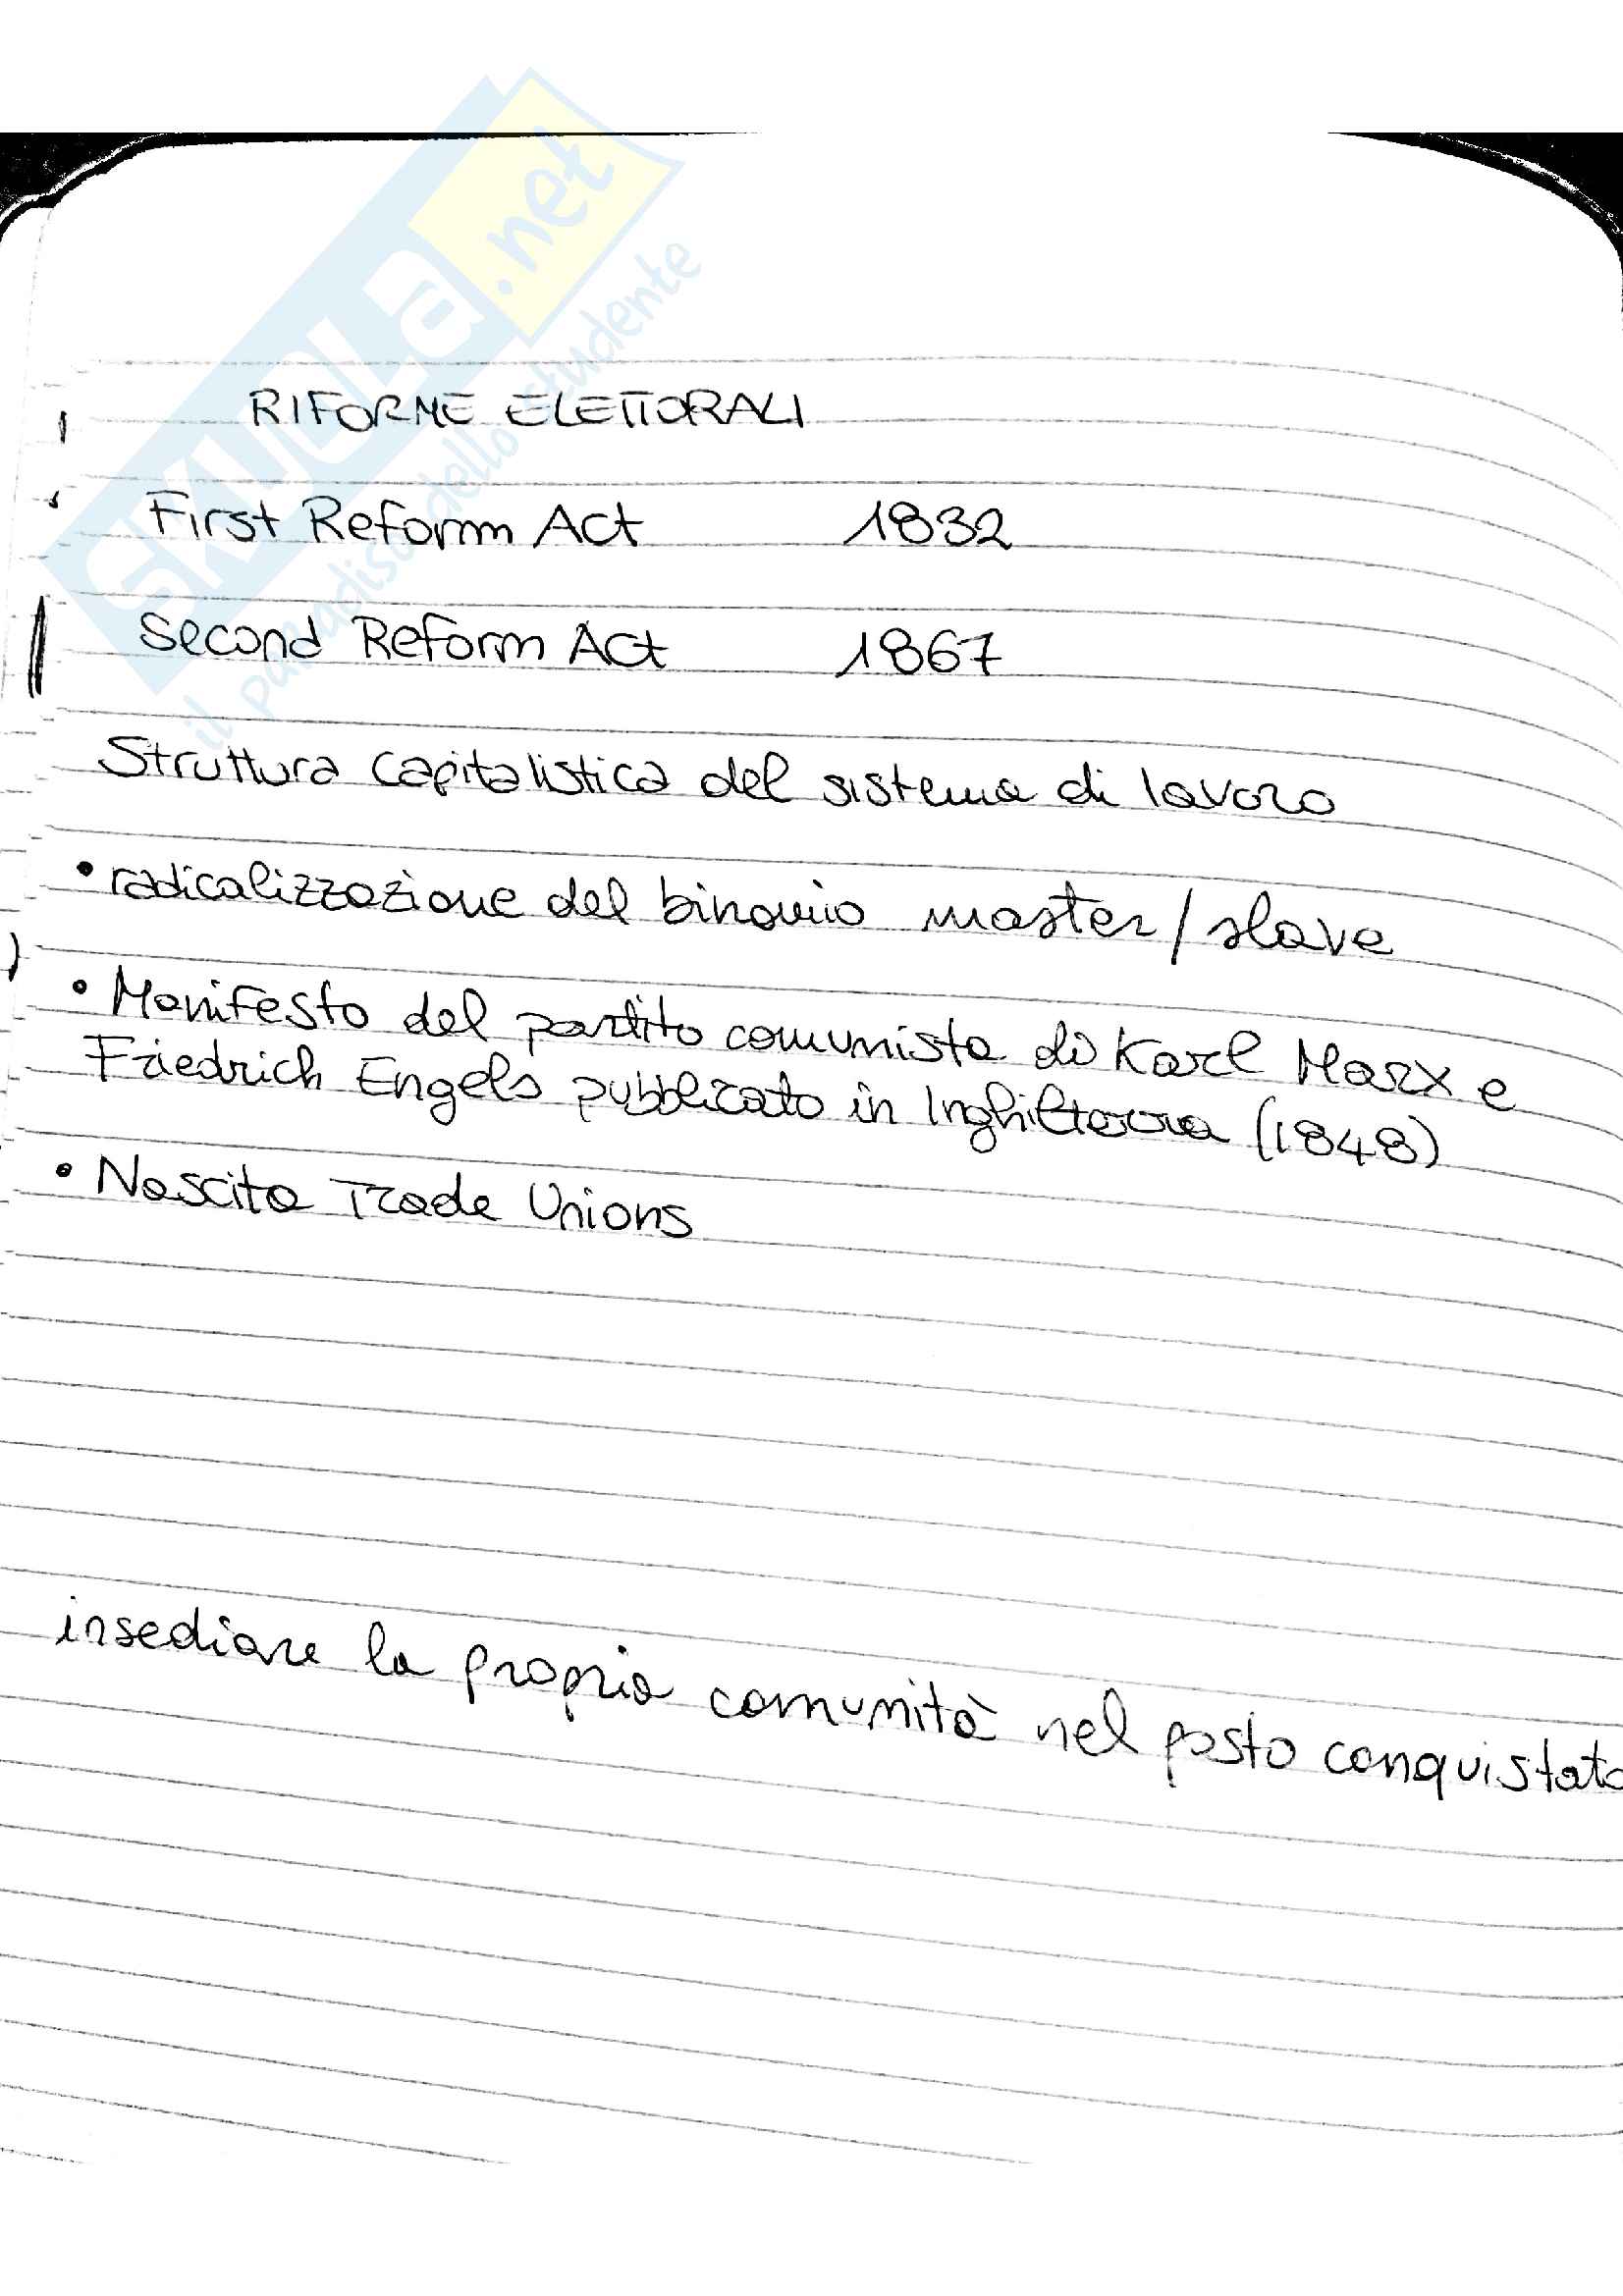 SKUOLA.net
il paradiso dello studente
RIFORME ELETTORALI
First Reform Act 1832
Second Reform Act 1867
Struttura capitalistica del sistema di lavoro
• radicalizzazione del binomio master/slave
• Manifesto del partito comunista di Karl Marx e
Friedrich Engels pubblicato in Inghilterra (1848)
• Nascita Trade Unions
insediare la propria comunità nel posto conquistato